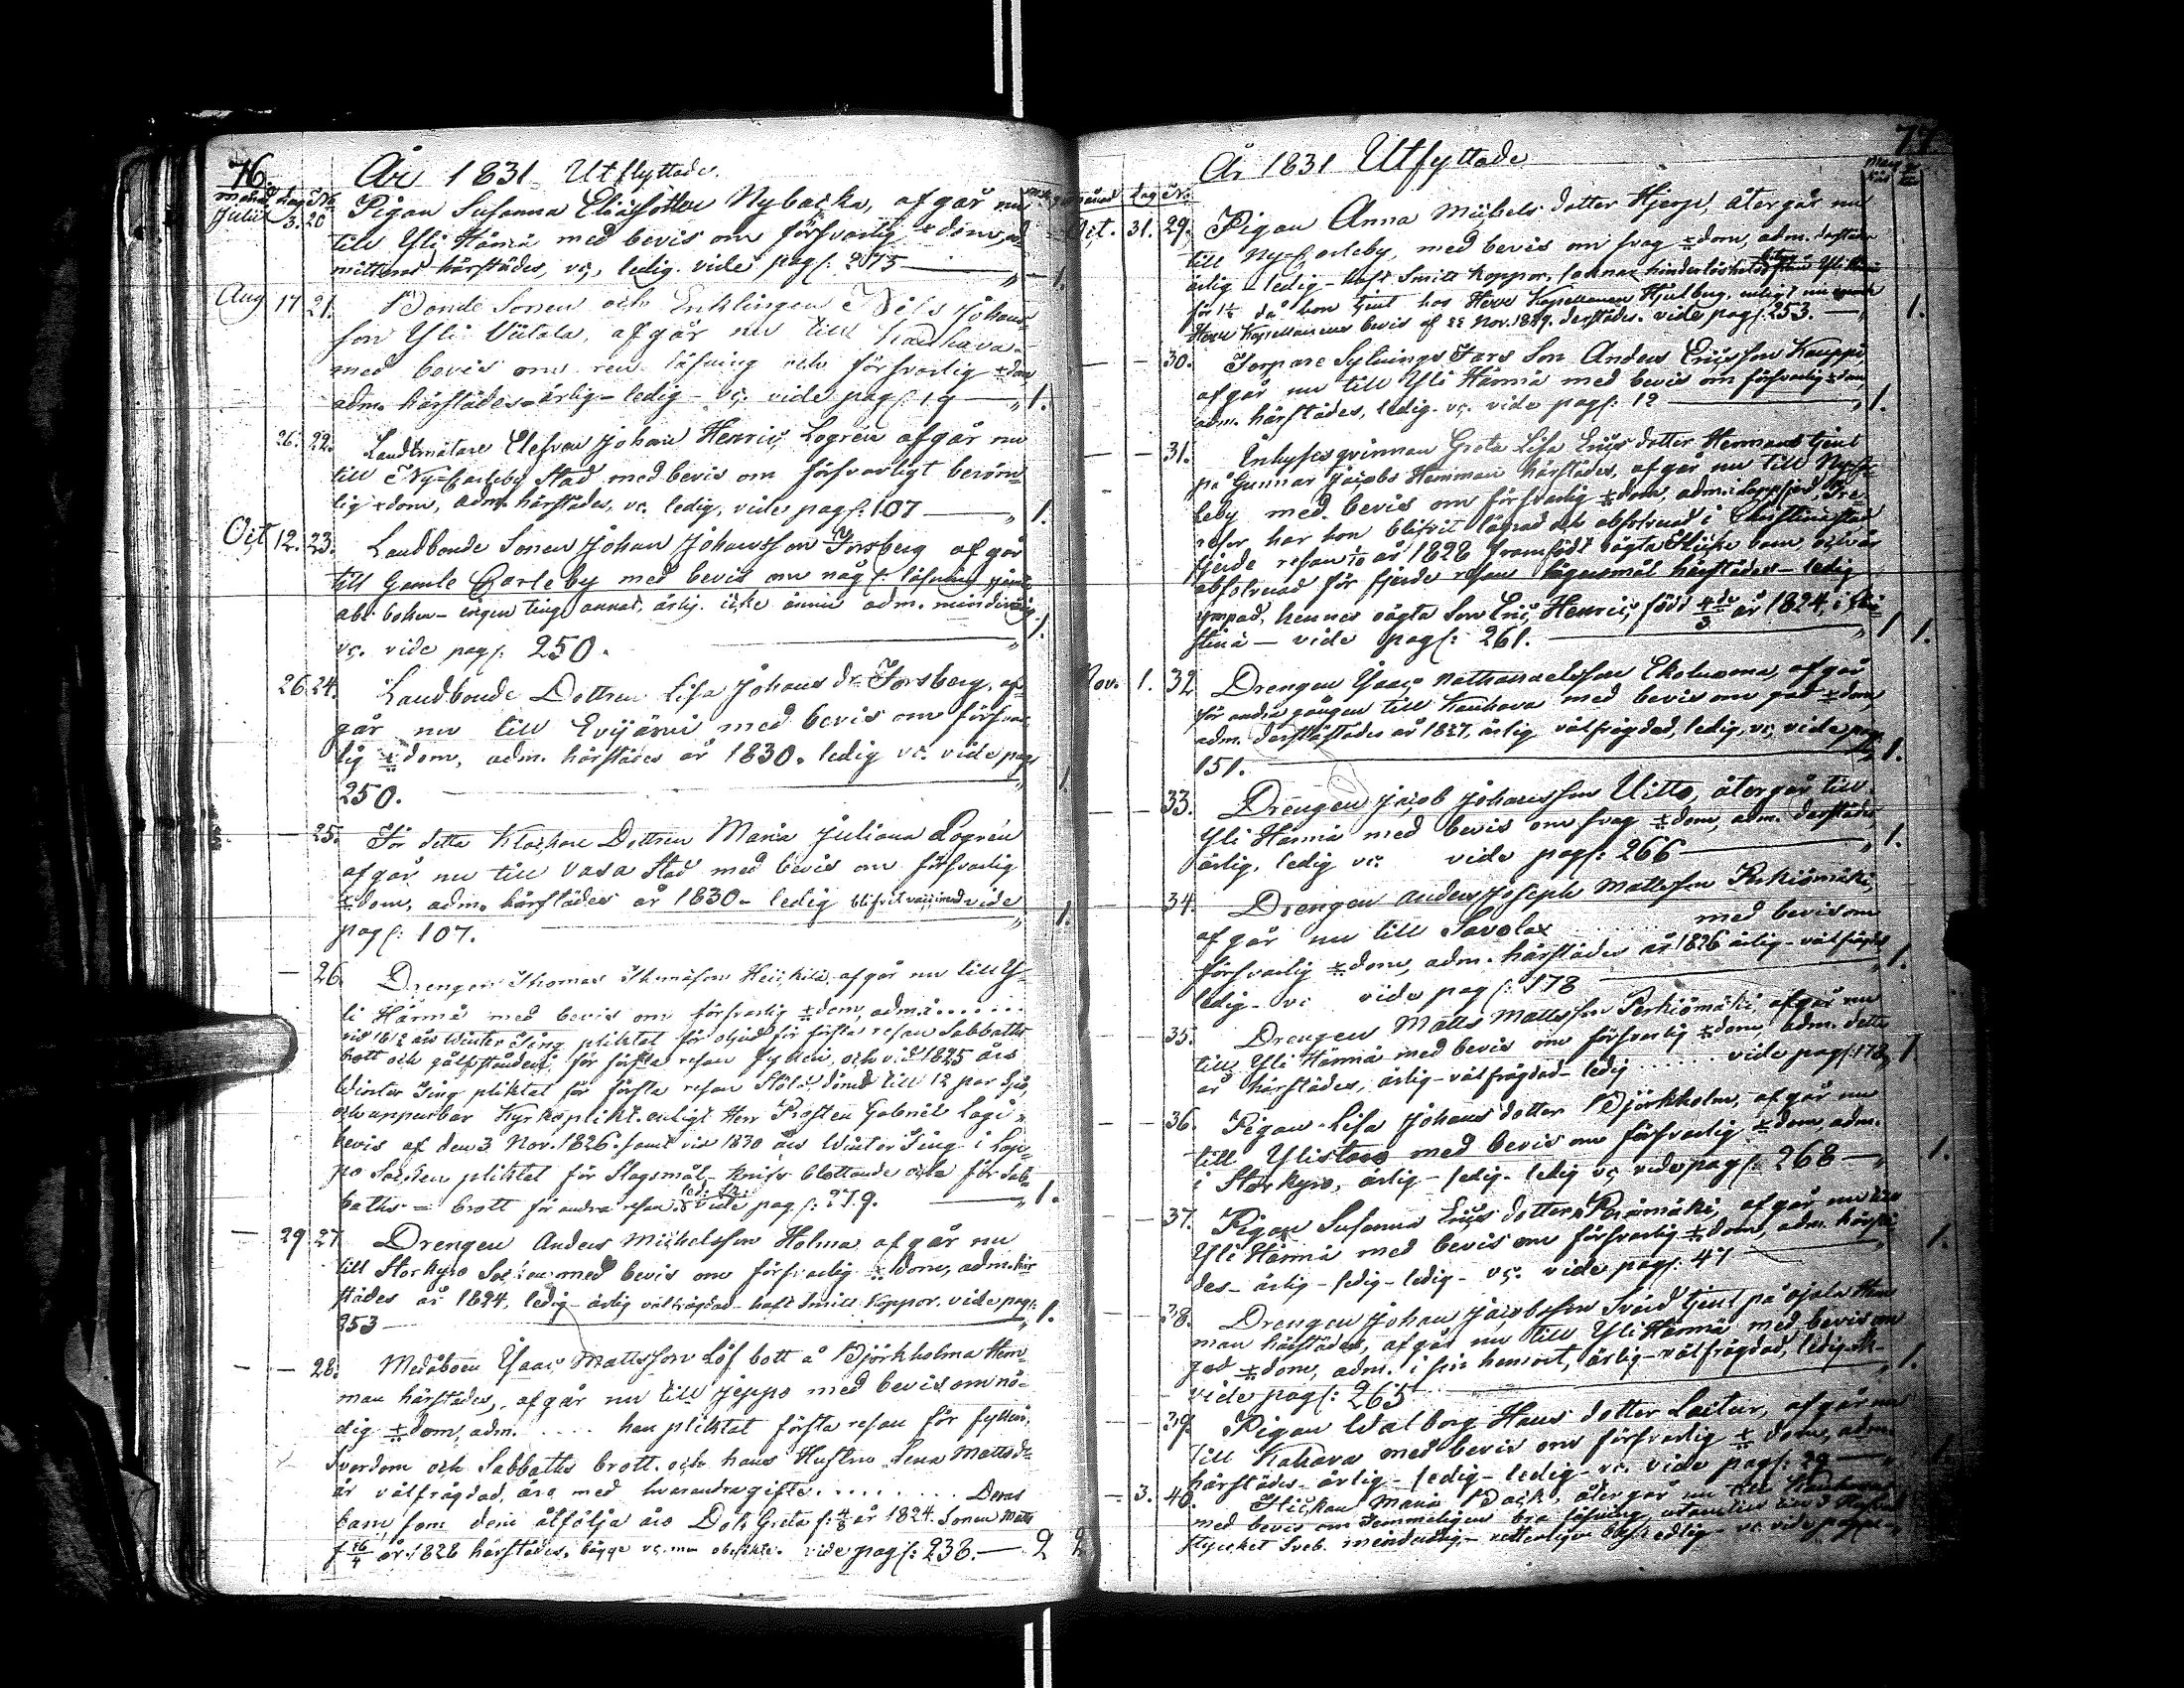 76.
År 1831 Utflyttade.
Månad Dag No
Julii 3. 20 Pigan Susanna Eliäsdotter Nybacka, afgår nu
till Yli Härmä med bevis om försvarlig xdom, ad-
mitterad härstädes, vc. ledig. vide pag: 1.
Aug 17 21. Bonde Sonen och Enklingen Nils Johans-
son Yli Viitala, afgår nu till Kauhava
med bevis om ren läsning och försvarlig xdom
adm. härstädes - ärlig - ledig - vc. vide pag: 19 1.
26. 22. Landtmätare Elefven Johan Henric Logren afgår nu
till Ny-Carleby Stad med bevis om försvarligt beröm-
lig xdom, adm. härstädes, vc. ledig, vide pag: 107 1.
Oct 12. 23. Landbonde Sonen Johan Johansson Forsberg afgår
till Gamle Carleby med bevis om någ: läsning
abc boken - ingen ting annat, ärlig. icke ännu adm. minderårig
vc. vide pag: 250. 1.
26. 24. Landbonde Dottren Lisa Johans dr Forsberg, af-
går nu till Evijärvi med bevis om försvar-
lig xdom, adm. härstädes år 1830. ledig vc. vide pag:
250. 1.
25. För detta Klockare Dottren Maria Juliana Logrén
afgår nu till Vasa Stad med bevis om försvarlig
xdom, adm. härstädes år 1830 - ledig blifvit vaccinerad vide
pag: 107. 1.
26. Drengen Thomas Thomasson Heickilä afgår nu till Y-
li Härmä med bevis om försvarlig xdom, adm. i . . . . . .
vid 1812 års Winter Ting pliktat för första resan Sabbaths
brott och för första resan fylleri, och vid 1825 års
Winter Ting pliktat för första resan Stöld, dömd till 12 par spö,
och uppenbar Kyrkoplikt. enligt Herr Prosten Gabriel Lagi
bevis af den 3 Nov. 1826. samt vid 1830 års Winter Ting i Lap-
po Socken pliktat för Slagsmål, Knifs blottande och för Sab-
baths-brott för andra resan vide pag: 279. 1.
29 27. Drengen Anders Michelsson Holma afgår nu
till Storkyro Socken med bevis om försvarlig xdom, adm. här-
städes år 1824, ledig - ärlig välfrägdad - haft Smitt Koppor. vide pag:
253 1.
28. Isaac Mattsson Löf bott å Björkholma Hem-
man härstädes, afgår nu till Jeppo med bevis om nö-
dig xdom, adm. . . . . han pliktat första resan för fylleri,
Svordom och Sabbaths brott. och hans Hustru Lena Mattsdr
är välfrägdad, äro med hvarandra gifte. . . . . . . . . Deras
barn, som dem åtfölja äro Dotr Greta f. 4/8 år 1824. Sonen Matts
f 16/4 år 1828 härstädes, bägge vc. vide pag: 238. 2 2
77.
År 1831 Utfyttade
Månad Dag No
Oct. 31. 29. Pigan Anna Michels dotter Hjerpe, återgår nu
till Ny-Carleby, med bevis om svag xdom, adm. derstädes
ärlig - ledig - haft Smitt Koppor, samt hinderlöshets
för 1½ då hon tjent hos Herr Kapellanen Hjulberg, enligt
Herr Kapellanens bevis af 22 Nov. 1829. derstädes. vide pag: 253. 1.
30. Torpare Sytnings Fars Son Anders Ericsson Kauppi
afgår nu till Yli Härmä med bevis om försvarlig xdom,
adm. härstädes, ledig. vc. vide pag: 12 1.
31. Inhyses qvinnan Greta Lisa Erics dotter Hermans tjent
på Gunnar Jacobs Hemman härstädes, afgår nu till Ny Car-
leby med bevis om försvarlig xdom, adm. i Lappfjerd, tre
resor har hon blifvit lägrad och absolverad i Christinestad
fjerde resan år 1828 framfödt oägta Flicke barn, och är
absolverad för fjerde resans lägersmål härstädes - ledig
ympad, hennes oägta Son Eric Henric, född 4de/3 år 1824, i Chri-
stina - vide pag: 261. 1 1.
Nov. 1. 32 Drengen Isaac Nathanaelsson Ekoluoma, afgår
för andra gången till Kauhava med bevis om god xdom,
adm. derstädes år 1827, ärlig välfrägdad, ledig, vc. vide pag:
151. 1.
33. Drengen Jacob Johansson Uitto, återgår till
Yli Härmä med bevis om svag xdom, adm. derstädes,
ärlig, ledig vc. vide pag: 266 1.
34. Drengen Anders Joseph Mattsson Perkiömäki,
afgår nu till Savolax . . . . . . . med bevis om
försvarlig xdom, adm. härstädes år 1826 ärlig - välfrägdad
ledig - vc vide pag: 178 1.
35. Drengen Matts Mattsson Perkiömäki, afgår nu
till Yli Härmä med bevis om försvarlig xdom, adm. detta
år härstädes, ärlig - välfrägdad - ledig . . . . . vide pag: 178 1
36. Pigan Lisa Johans dotter Björkholm, afgår nu
till Ylistaro med bevis om försvarlig xdom, adm.
i Storkyro, ärlig - ledig - ledig vc vide pag: 268 1.
37. Pigan Susanna Erics dotter afgår nu till
Yli Härmä med bevis om försvarlig xdom, adm. härstä-
des - ärlig - ledig - ledig - vc. vide pag: 47 1.
38. Drengen Johan Jacobsson Svärd tjent på Ojala Hem-
man härstädes, afgår nu till Yli Härmä med bevis om
god xdom, adm. i sin hemort, ärlig - välfrägdad, ledig
vide pag: 265 1.
39. Pigan Walborg Hans dotter Laitur, afgår nu
till Kahava med bevis om försvarlig xdom, adm.
härstädes - ärlig - ledig - ledig - vc. vide pag: 29 1.
3. 40. Flickan Maria Back, återgår nu till Kauhava
med bevis om temmeligen bra läsning, utantill
stycket Sveb. minderårig - vc. vide pag: